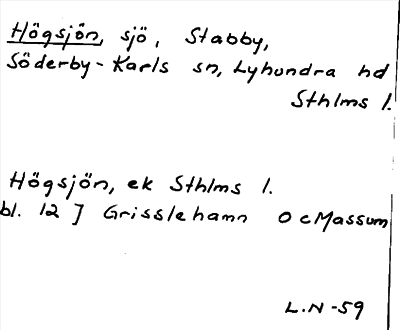 Högsjön, sjö, Stabby,
Söderby-Karls sn, Lyhundra hd
Sthlms l.
Högsjön, ek Sthlms l.
bl. 12 J Grisslehamn O c Massum
L.N-59